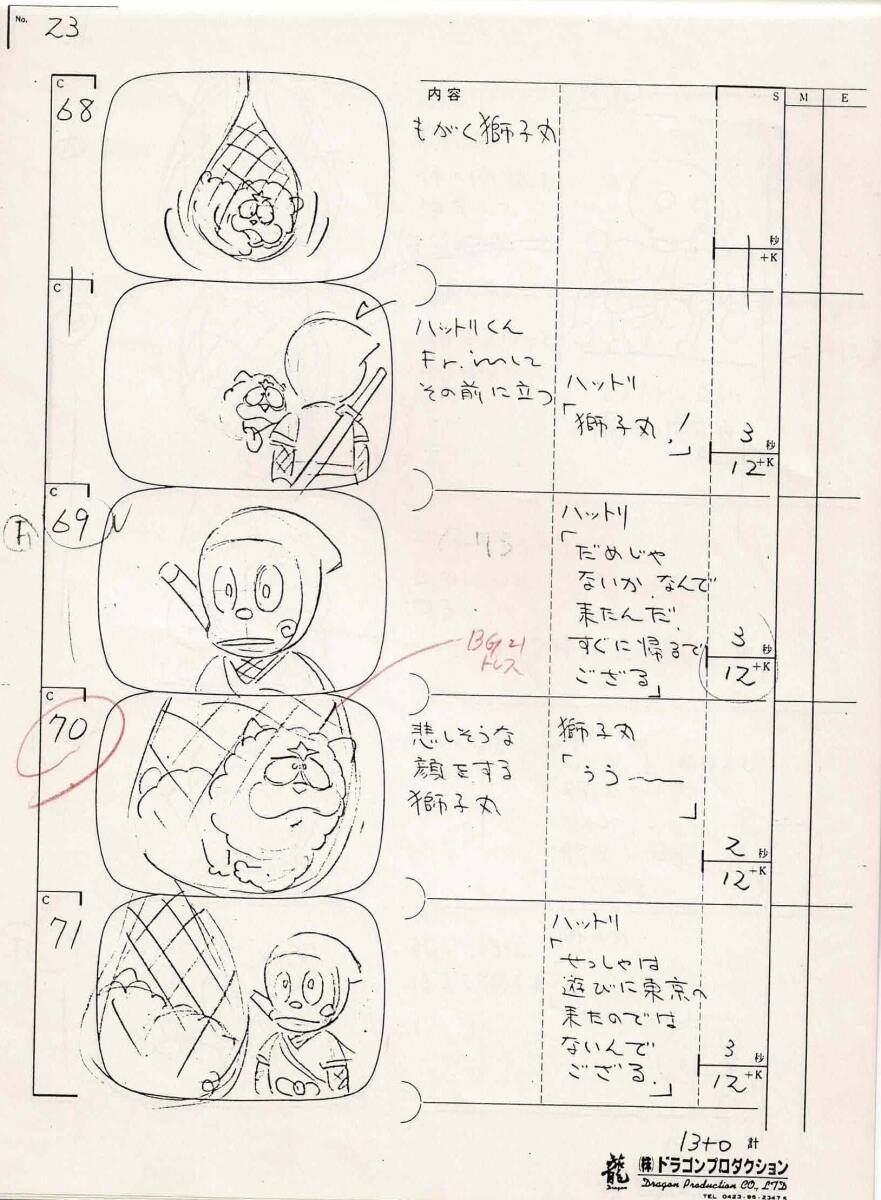 No. 23
内容
S M E
C
68
もがく獅子丸
秒
+K
C
ハットリくん
Fr.inして
その前に立つ
ハットリ
「獅子丸!」
3秒
12+K
C
69
ハットリ
「だめじゃ
ないか、なんで
来たんだ、
すぐに帰るで
ござる」
3秒
12+K
C
70
BG
トレス
悲しそうな
顔をする
獅子丸
獅子丸
「うう〜」
2秒
12+K
C
71
ハットリ
「せっしゃは
遊びに東京へ
来たのでは
ないんで
ござる。」
3秒
12+K
13+0 計
龍
Dragon
(株)ドラゴンプロダクション
Dragon Production CO., LTD
TEL 0423-95-2347